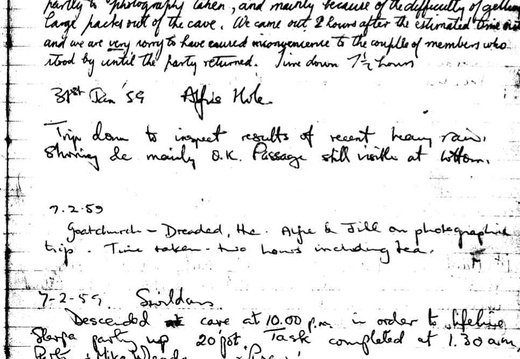 partly to photography taken, and mainly because of the difficulty of getting
large packs out of the cave. We came out 2 hours after the estimated time out
and we are very sorry to have caused inconvenience to the couple of members who
stood by until the party returned. Time down 7½ hours
31st Jan '59 Alfie's Hole.
Trip down to inspect results of recent heavy rain.
Shoring &c mainly O.K. Passage still visible at bottom.
7.2.59
Goatchurch – Dreaded, the. Alfie & Jill on photographic
trip. Time taken - two hours including tea.
7-2-59. Swildons
Descended cave at 10.00 p.m. in order to lifeline
Sherpa party up 20 pot. Task completed at 1.30 a.m.